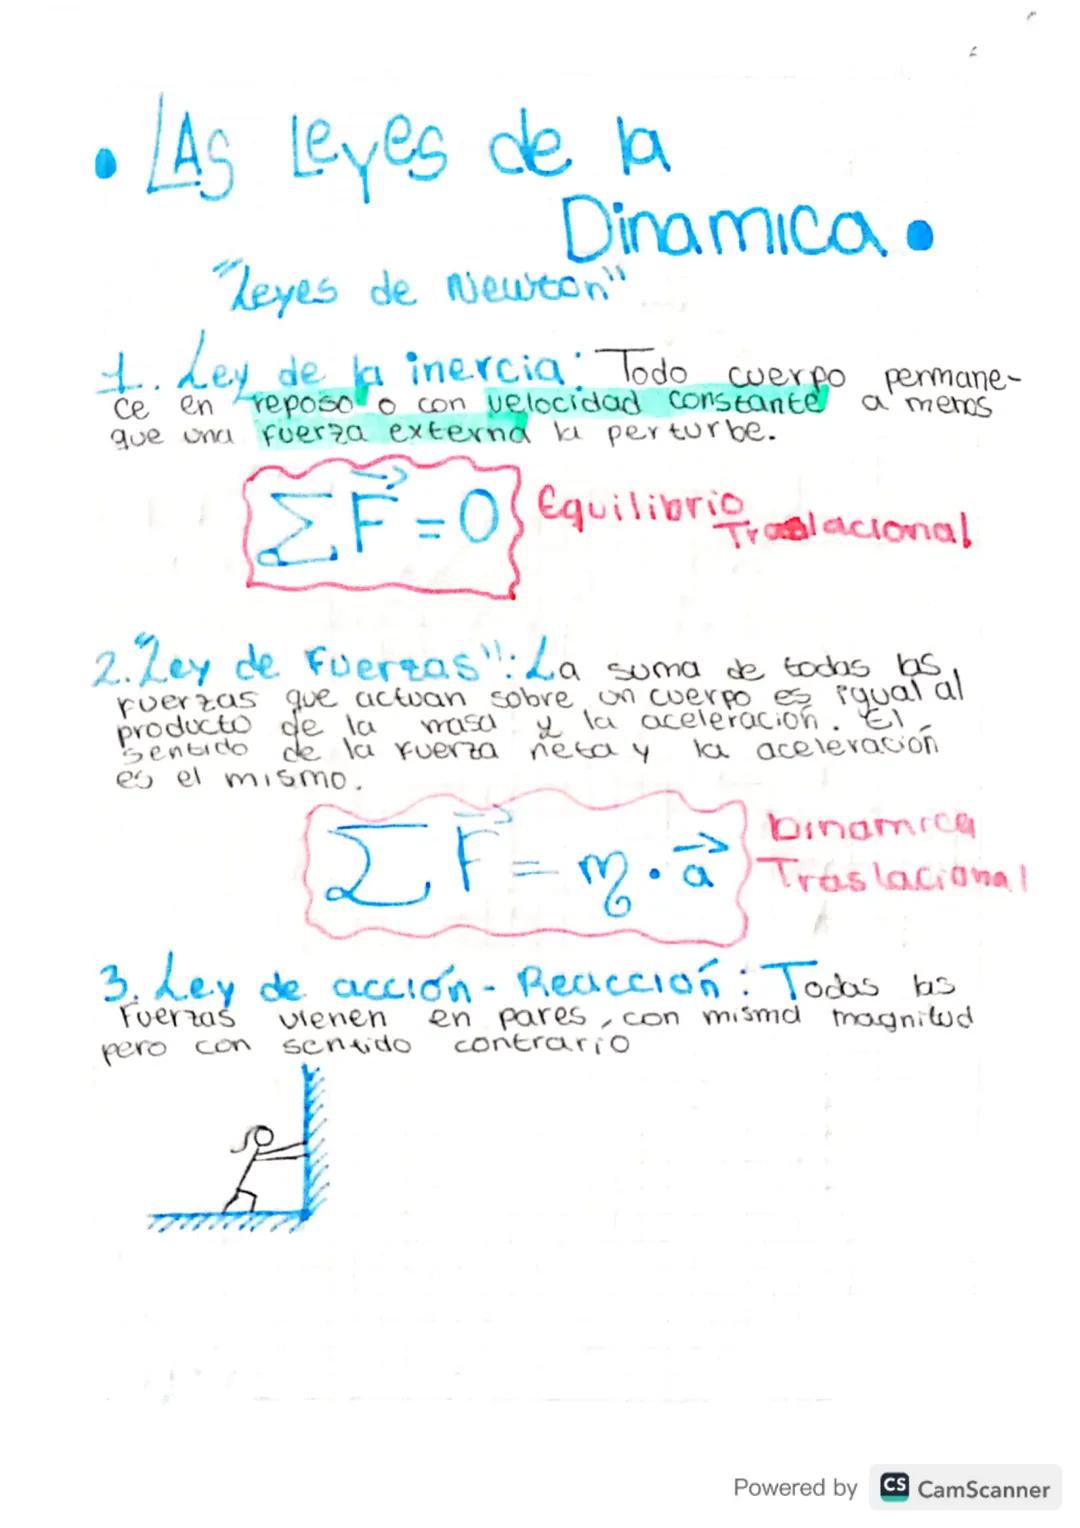 • LAS Leyes de la
Dinamica •
"Leyes de Newton"
1. Ley de la inercia: Todo cuerpo permane-
ce en reposo o con velocidad constante a menos
que una fuerza externa la perturbe.
∑F⃗ = 0 Equilibrio
Traslacional
2. "Ley de Fuerzas": La suma de todas las
fuerzas que actuan sobre un cuerpo es igual al
producto de la masa y la aceleración. El
sentido de la fuerza neta y la aceleración
es el mismo.
∑F⃗ = m · a⃗ Dinamica
Traslacional
3. Ley de acción - Reacción: Todas las
Fuerzas vienen en pares, con misma magnitud
pero con sentido contrario
Powered by CS CamScanner